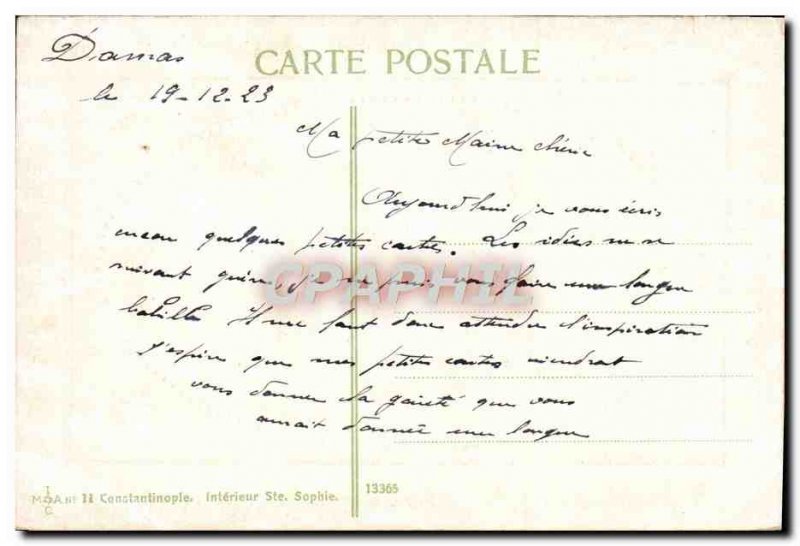 Damas
CARTE POSTALE
le 19-12-23
Ma petite Maine chérie
Aujourd'hui je vous écris
encore quelques petites cartes. Les idées ne me
suivant guère, je ne puis vous faire une longue
babille Il me faut donc attendre l'inspiration
J'espère que mes petites cartes viendront
vous donner la gaieté que vous
aurait donnée une longue
CPAPHIL
11 Constantinople. Intérieur Ste. Sophie.
13365